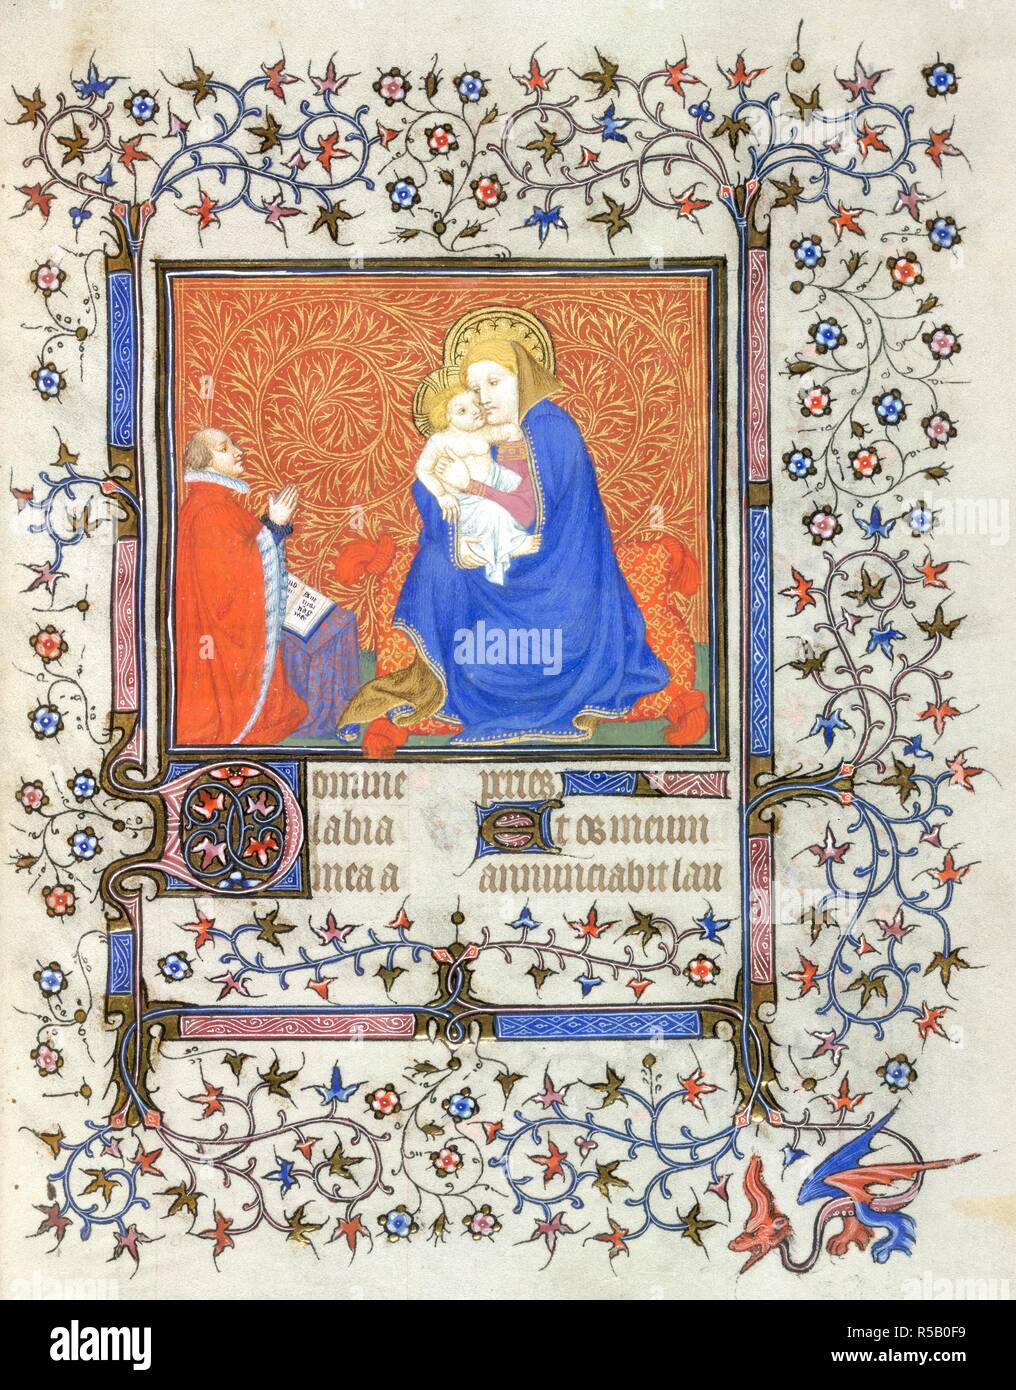 Domine
labia
mea a
peries
Et os meum
annunciabit lau
alamy
Image ID: R5B0F9
www.alamy.com